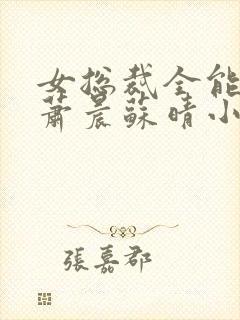 女总裁全能
萧晨苏晴小
張嘉郡